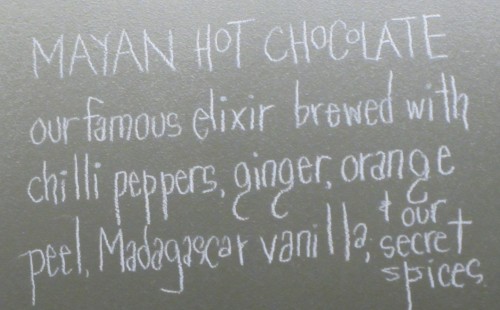 MAYAN HOT CHOCOLATE
our famous elixir brewed with
chilli peppers, ginger, orange
peel, Madagascar vanilla, + our
secret
spices